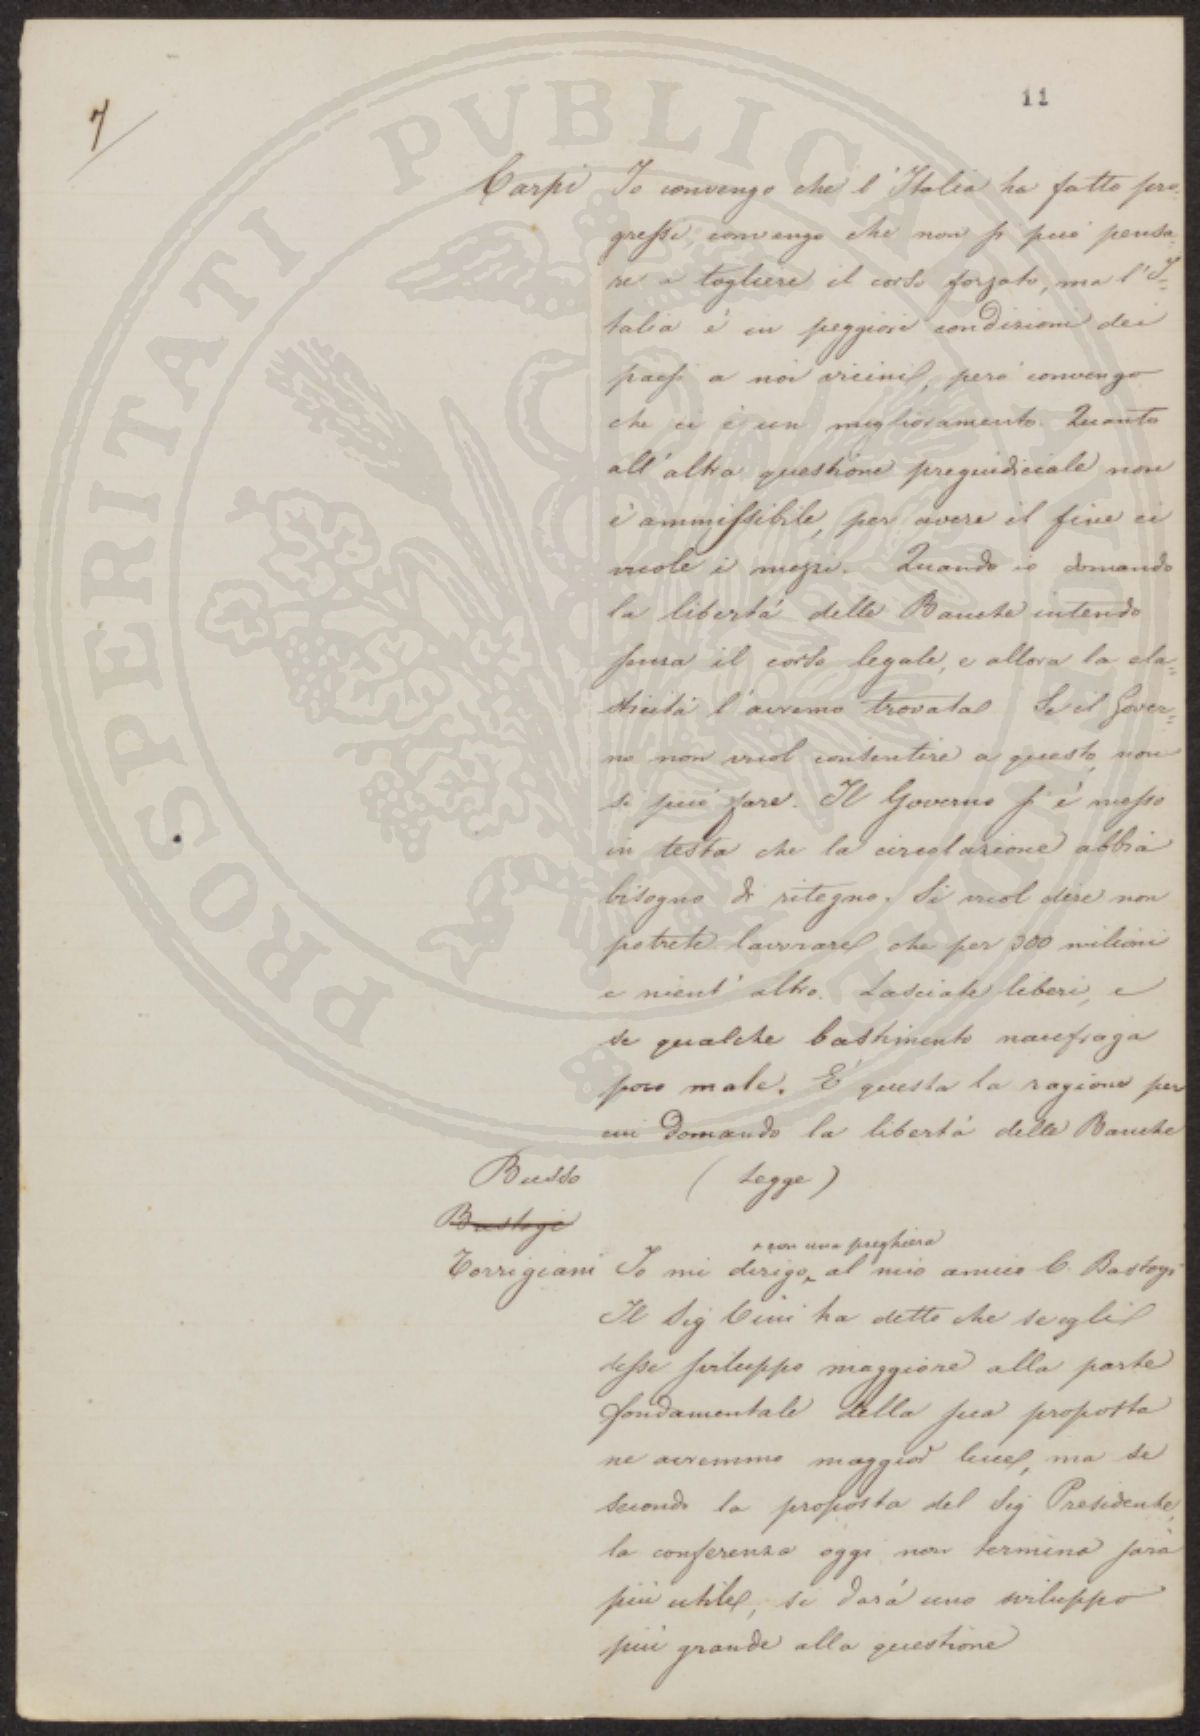 7
11
PROSPERITATI PUBLICAE AUGENDAE
Carpi Io convengo che l'Italia ha fatto pro-
gressi, convengo che non si può pensa-
re a togliere il corso forzato, ma l'I-
talia è in peggiori condizioni dei
paesi a noi vicini, però convengo
che ci è un miglioramento. Quanto
all'altra questione pregiudiciale non
è ammissibile, per avere il fine ci
vuole i mezzi. Quando io domando
la libertà delle Banche intendo
senza il corso legale, e allora la ela-
sticità l'avremo trovata. Se il Gover-
no non vuol consentire a questo, non
si può fare. Il Governo si è messo
in testa che la circolazione abbia
bisogno di ritegno. Si vuol dire non
potrete lavorare che per 300 milioni
e nient'altro. Lasciate liberi, e
se qualche bastimento naufraga
poco male. E' questa la ragione per
cui domando la libertà delle Banche
Busso ( Legge )
Bastogi
+ con una preghiera
Torrigiani Io mi dirigo al mio amico C. Bastogi
Il Sig Cini ha detto che se egli
desse sviluppo maggiore alla parte
fondamentale della sua proposta
ne avremmo maggior luce, ma se
secondo la proposta del Sig Presidente,
la conferenza oggi non termina sarà
più utile, si darà uno sviluppo
più grande alla questione